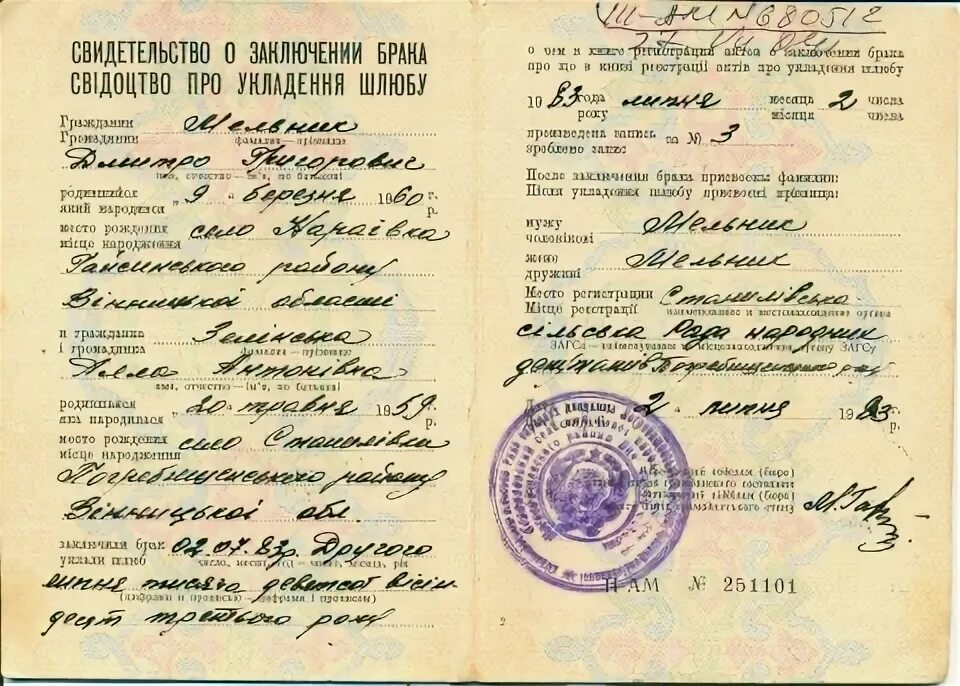 СВИДЕТЕЛЬСТВО О ЗАКЛЮЧЕНИИ БРАКА
СВІДОЦТВО ПРО УКЛАДЕННЯ ШЛЮБУ
Гражданин Мельник
Громадянин
фамилия — прізвище
Дмитро Григорович
имя, отчество — ім'я, по батькові
родившийся „9 " березня 1960 г.
який народився р.
место рождения село Караївка
місце народження
Гайсинського району
Вінницької області
и гражданка Зелінська
і громадянка
фамилия — прізвище
Алла Антонівна
имя, отчество — ім'я, по батькові
родившаяся „20 " травня 1959 г.
яка народилася р.
место рождения село Станилівка
місце народження
Погребищенського району
Вінницької обл.
заключили брак 02.07.83р. Другого
уклали шлюб число, месяц, год — число, місяць, рік
липня тисяча девятсот вісім
(цифрами и прописью — цифрами і прописом)
десят третього року
III-АМ № 680512
о чем в книге регистрации актов о заключении брака
про що в книзі реєстрації актів про укладення шлюбу
1983 года липня месяца 2 числа
року місяця числа
произведена запись за № 3
зроблено запис
После заключения брака присвоены фамилии:
Після укладення шлюбу присвоєні прізвища:
мужу Мельник
чоловікові
жене Мельник
дружині
Место регистрации Станилівська
Місце реєстрації наименование и местонахождение органа
сільська Рада народних
ЗАГСа — найменування і місцезнаходження органу ЗАГСу
депутатів Погребищенського р-ну
2 " липня 1983 г.
р.
II-АМ № 251101
2